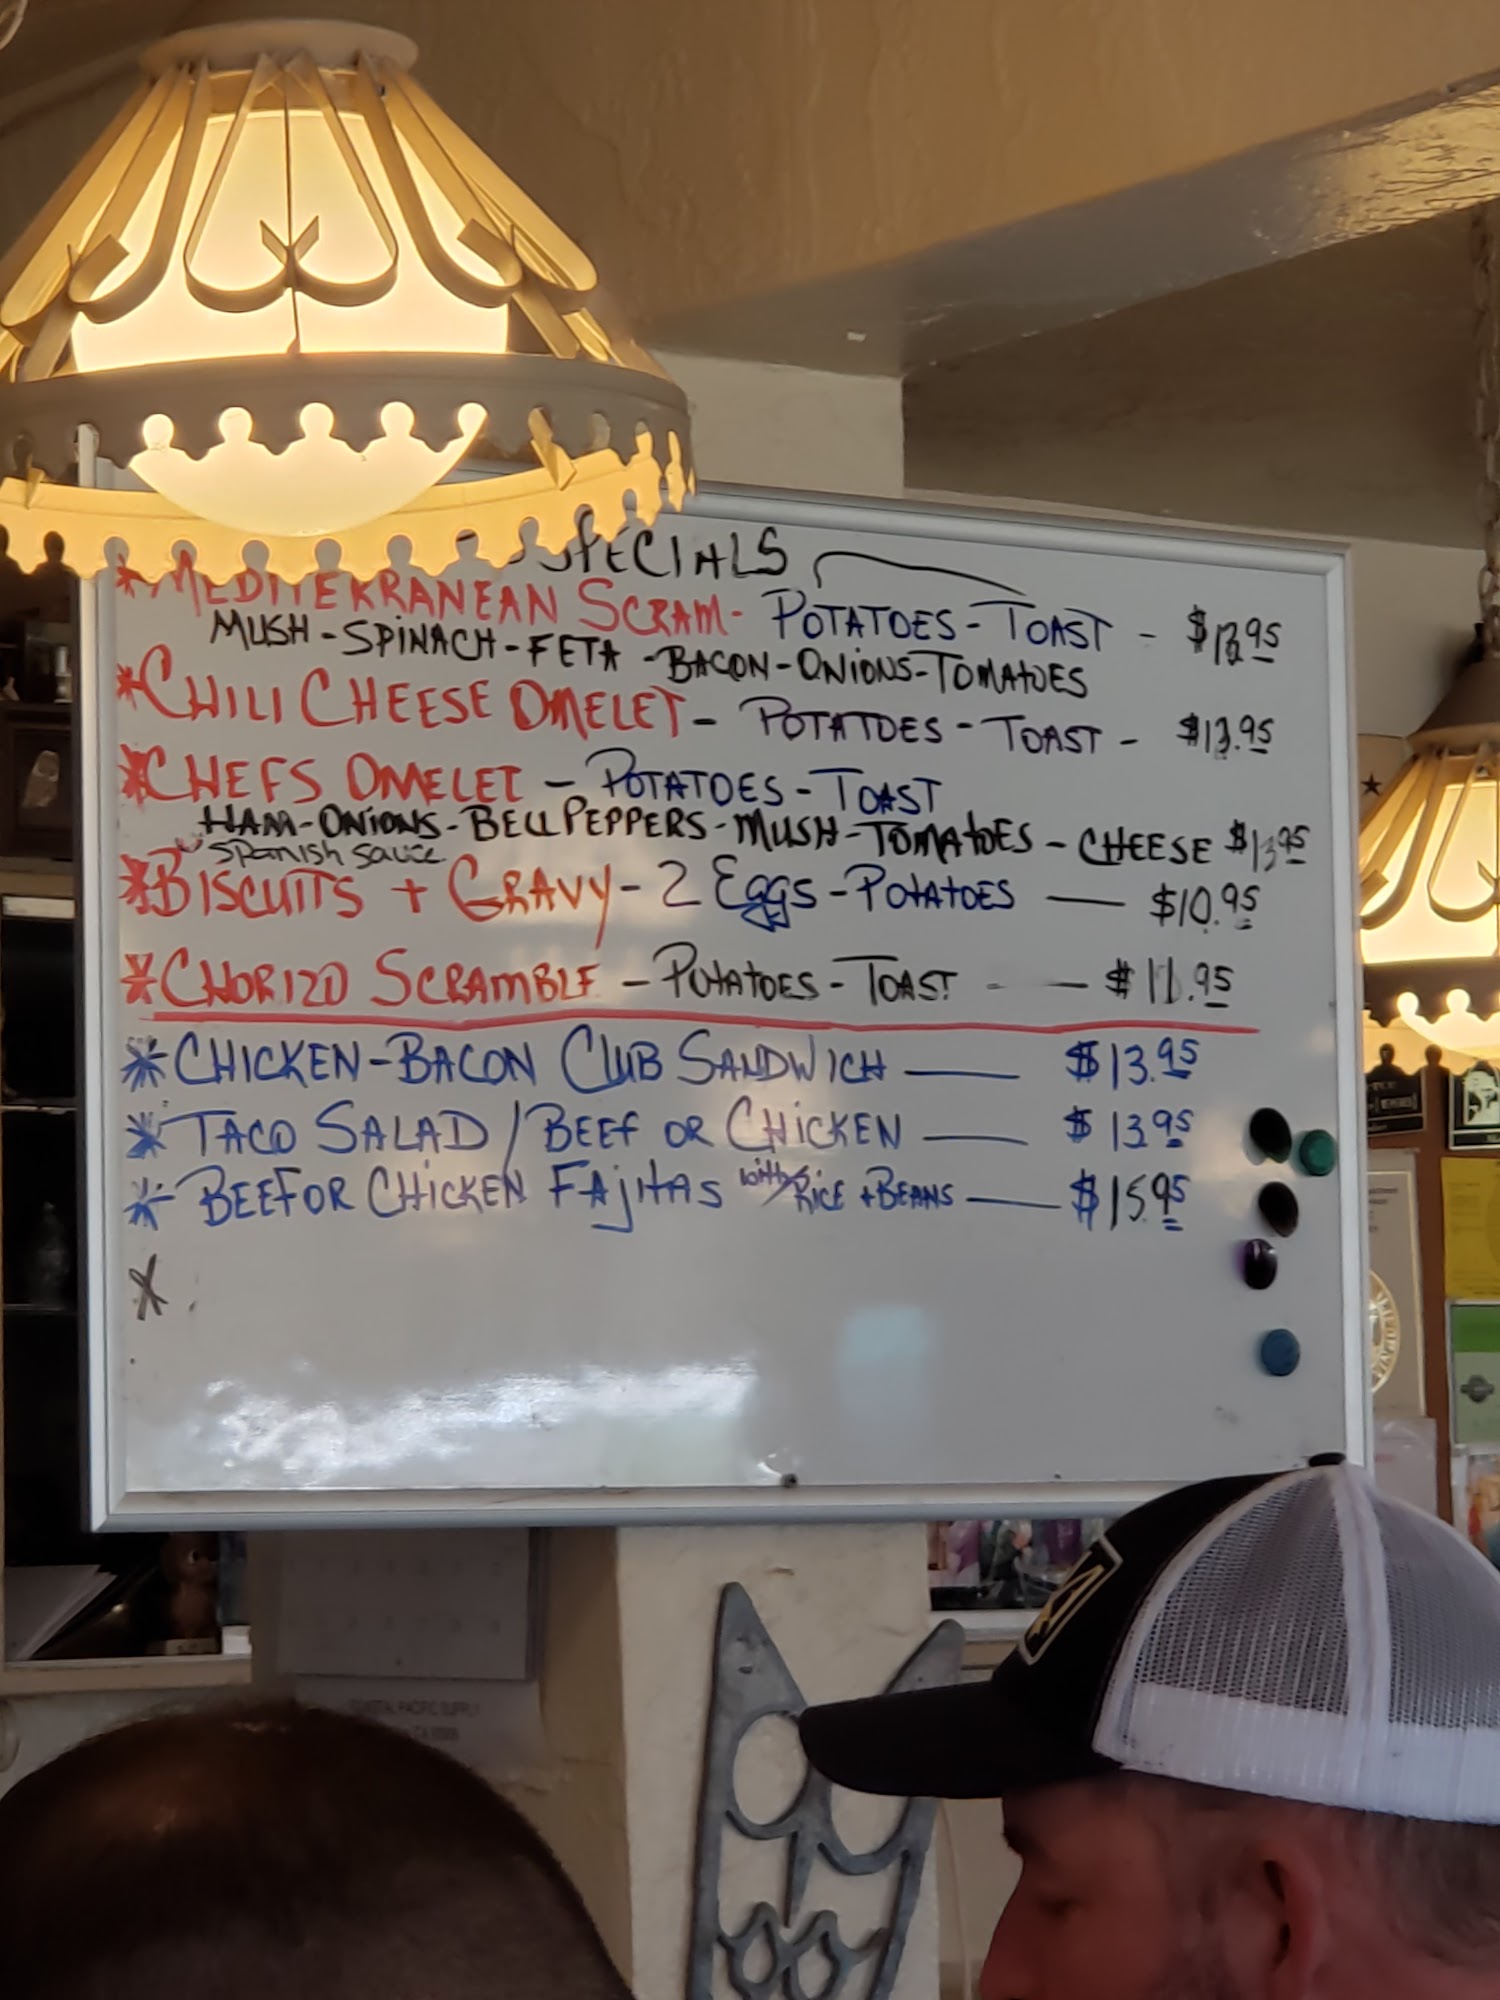 SPECIALS
*MEDITERRANEAN SCRAM- POTATOES-TOAST - $13.95
MUSH-SPINACH-FETA-BACON-ONIONS-TOMATOES
*CHILI CHEESE OMELET- POTATOES-TOAST- $13.95
*CHEFS OMELET - POTATOES-TOAST
HAM-ONIONS-BELLPEPPERS-MUSH-TOMATOES-CHEESE $13.95
Spanish sauce
*BISCUITS + GRAVY-2 Eggs-POTATOES — $10.95
*CHORIZO SCRAMBLE-POTATOES-TOAST - — $11.95
*CHICKEN-BACON CLUB SANDWICH — $13.95
*TACO SALAD/BEEF OR CHICKEN — $13.95
*BEEF OR CHICKEN FAjITAS with RICE + BEANS — $15.95
*
COASTAL PACIFIC SUPPLY